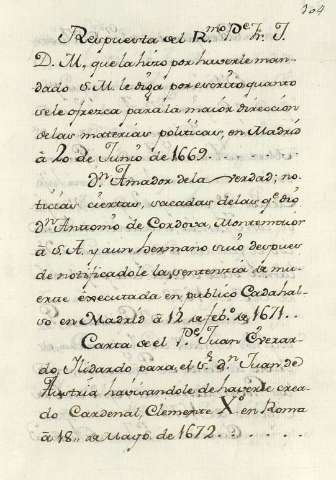 304
Respuesta del R.mo P.e Fr. J.
D. M, que la hizo por haverle man-
dado S. M. le diga por escrito quanto
se le ofrezca para la maior direccion
de las materias politicas, en Madrid
à 20 de Junio de 1669.
D.n Amador de la verdad; no-
ticias ciertas, sacadas de las q.e dio
d.n Antonio de Cordova, Montemaior
à S. A. y a un hermano suio despues
de notificadole la sententia de mu-
erte executada en publico Cadahal-
so en Madrid à 12 de feb.o de 1671.
Carta de el P.e Juan Everar-
do, Nidardo para el S.r d.n Juan de
Austria havisandole de haverle crea-
do Cardenal, Clemente X.o en Roma
à 18 de Mayo de 1672.